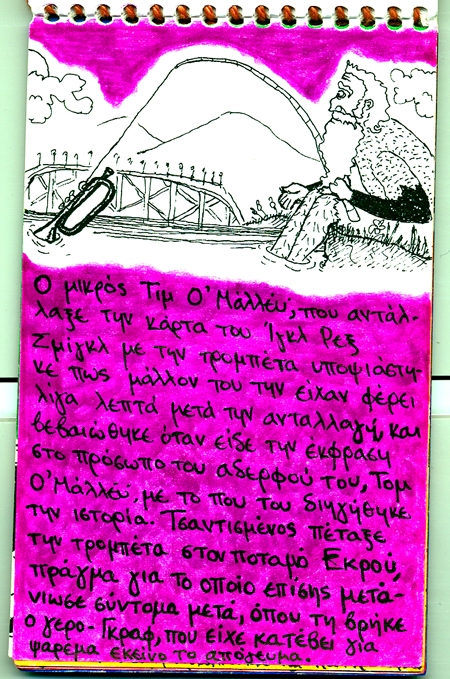 Ο μικρός Τιμ Ο'Μάλλεϋ, που αντάλ-
λαξε την κάρτα του Ίγκλ Ρεξ
Ζμίγκλ με την τρομπέτα υποψιάστη-
κε πως μάλλον του την είχαν φέρει
λίγα λεπτά μετά την ανταλλαγή, και
βεβαιώθηκε όταν είδε την έκφραση
στο πρόσωπο του αδερφού του, Τομ
Ο'Μάλλεϋ, με το που του διηγήθηκε
την ιστορία. Τσαντισμένος πέταξε
την τρομπέτα στον ποταμό Εκρού,
πράγμα για το οποίο επίσης μετά-
νιωσε σύντομα μετά, όπου τη βρήκε
ο γερο-Γκραφ, που είχε κατέβει για
ψάρεμα εκείνο το απόγευμα.